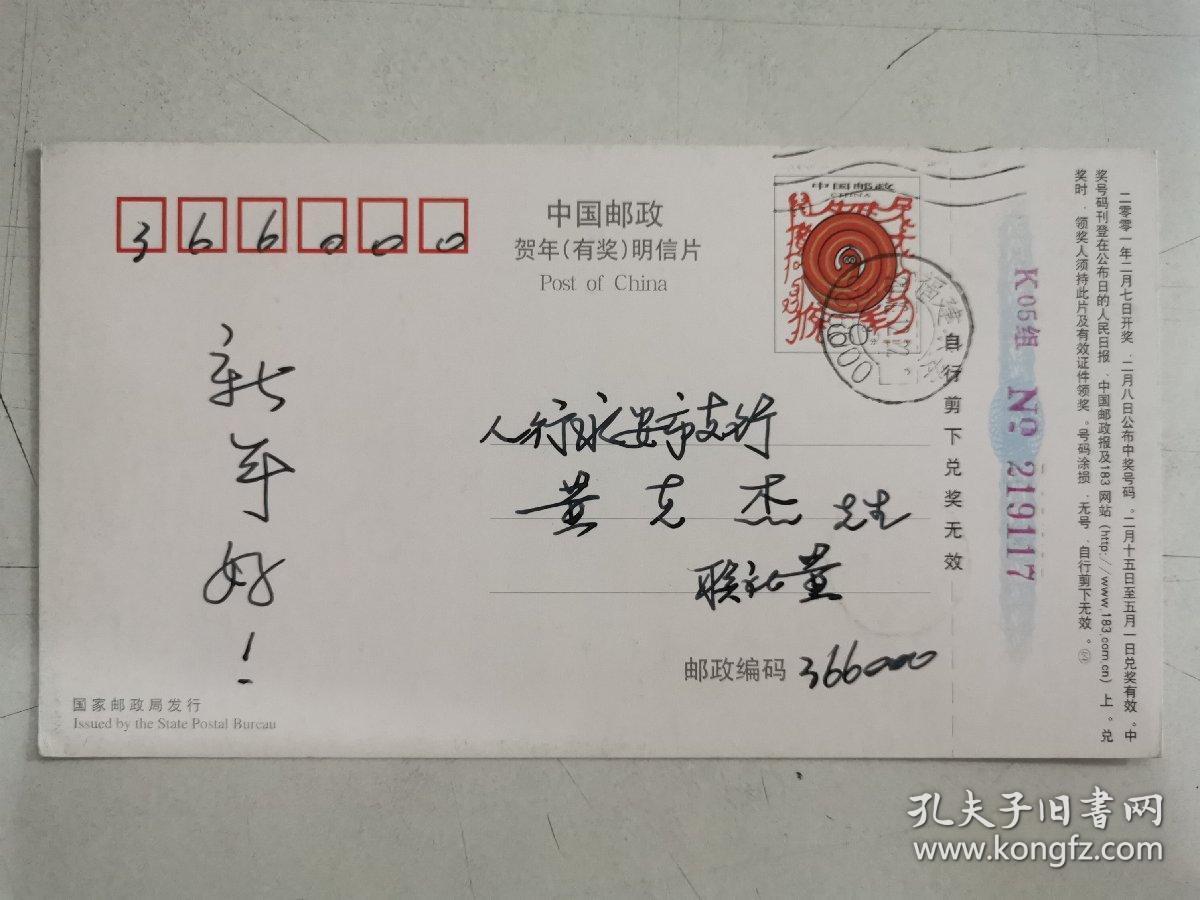 366000
中国邮政
贺年(有奖)明信片
Post of China
中国邮政
CHINA
福建
新年好！
人行永安市支行
黄克杰 先生
联社黄
邮政编码 366000
国家邮政局发行
Issued by the State Postal Bureau
自行剪下兑奖无效
K05组 No 219117
二零零一年二月七日开奖、二月八日公布中奖号码。二月十五日至五月一日兑奖有效。中
奖号码刊登在公布日的人民日报、中国邮政报及183网站(http://www.183.com.cn)上。兑
奖时、领奖人须持此片及有效证件领奖。号码涂损、无号、自行剪下无效。
孔夫子旧书网
www.kongfz.com